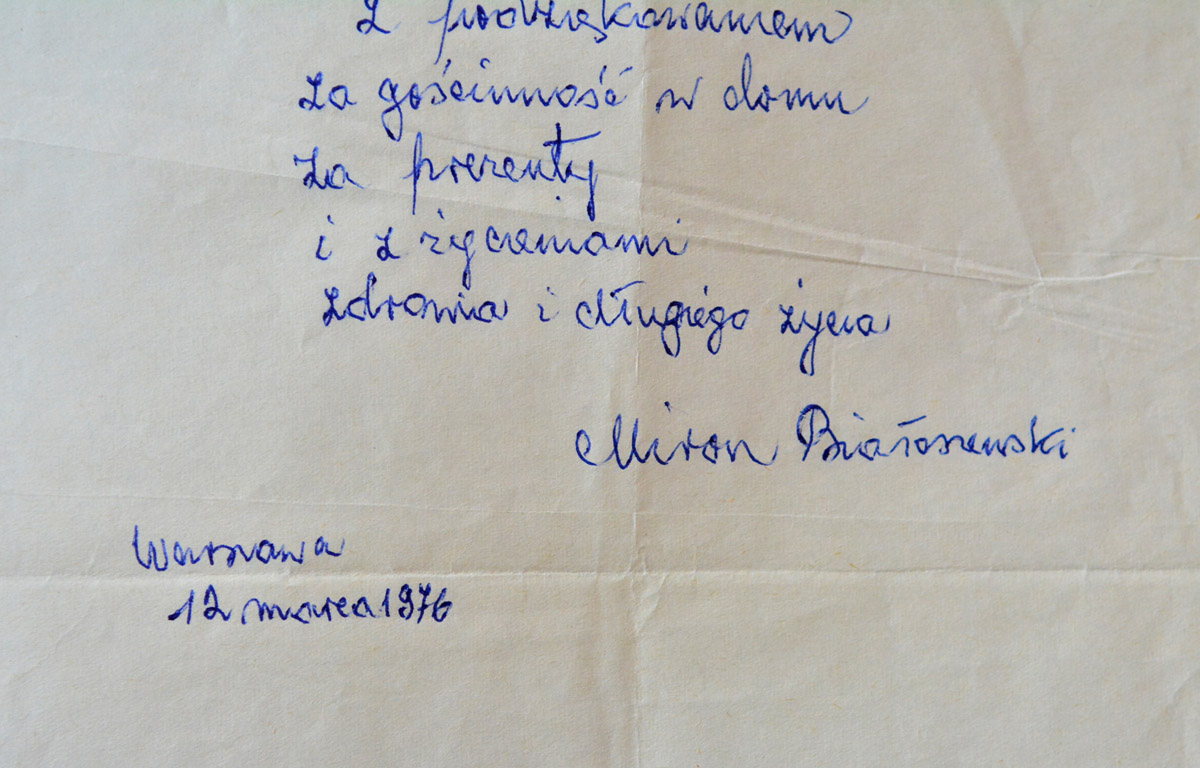 z podziękowaniem
za gościnność w domu
za prezenty
i z życzeniami
zdrowia i długiego życia
Miron Białoszewski
Warszawa
12 marca 1976